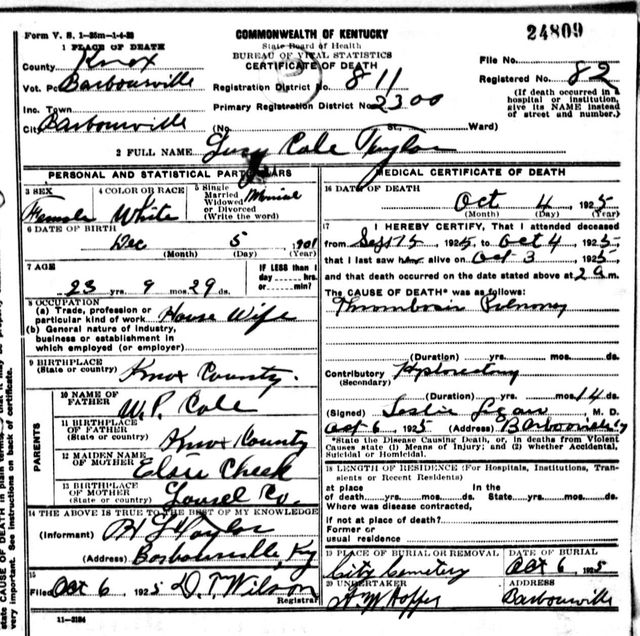 Form V. S. 1-25m-1-4-25
COMMONWEALTH OF KENTUCKY
24809
1 PLACE OF DEATH
State Board of Health
BUREAU OF VITAL STATISTICS
CERTIFICATE OF DEATH
County Knox
File No.
Vot. Pct Barbourville
Registration District No. 811
Registered No. 82
Inc. Town
Primary Registration District No. 2300
(If death occurred in hospital or institution, give its NAME instead of street and number.)
City Barbourville
(No. St. Ward)
2 FULL NAME Lucy Cole Taylor
PERSONAL AND STATISTICAL PARTICULARS
3 SEX Female
4 COLOR OR RACE White
5 Single Married Widowed or Divorced (Write the word)
6 DATE OF BIRTH
Dec 5 1901
(Month) (Day) (Year)
7 AGE
23 yrs. 9 mos. 29 ds.
IF LESS than 1 day hrs. or min.?
8 OCCUPATION
(a) Trade, profession or particular kind of work House Wife
(b) General nature of industry, business or establishment in which employed (or employer)
9 BIRTHPLACE (State or country) Knox County.
PARENTS
10 NAME OF FATHER W. P. Cole
11 BIRTHPLACE OF FATHER (State or country) Knox County
12 MAIDEN NAME OF MOTHER Elsie Cheek
13 BIRTHPLACE OF MOTHER (State or country) Laurel Co.
14 THE ABOVE IS TRUE TO THE BEST OF MY KNOWLEDGE
(Informant) H L Taylor
(Address) Barbourville, Ky
15
Filed Oct 6 1925 D. T. Wilson
Registrar
11-3184
MEDICAL CERTIFICATE OF DEATH
16 DATE OF DEATH
Oct 4 1925
(Month) (Day) (Year)
17 I HEREBY CERTIFY, That I attended deceased
from Sept 15 1925, to Oct 4 1925
that I last saw alive on Oct 3 1925,
and that death occurred on the date stated above at 2 a m.
The CAUSE OF DEATH* was as follows:
Thrombosis Pulmonary
(Duration) yrs. mos. ds.
Contributory (Secondary)
(Duration) yrs. mos. 14 ds.
(Signed) Leslie Logan M. D.
Oct 6 1925 (Address) Barbourville Ky
*State the Disease Causing Death, or, in deaths from Violent Causes state (1) Means of Injury; and (2) whether Accidental, Suicidal or Homicidal.
18 LENGTH OF RESIDENCE (For Hospitals, Institutions, Transients or Recent Residents)
at place of death yrs. mos. ds. In the State yrs. mos. ds.
Where was disease contracted,
if not at place of death?
Former or usual residence
19 PLACE OF BURIAL OR REMOVAL City Cemetery
DATE OF BURIAL Oct 6 1925
20 UNDERTAKER A. W. Hopper
ADDRESS Barbourville
state CAUSE OF DEATH in plain terms
very important. See instructions on back of certificate.